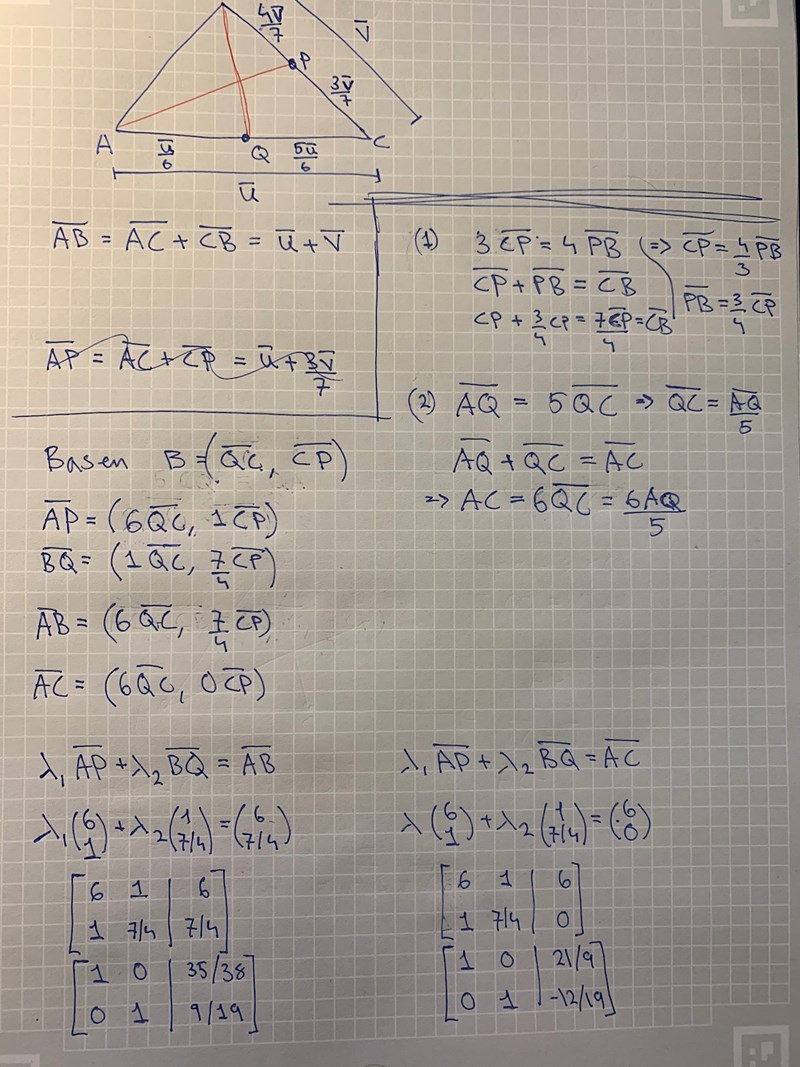 4v̅/7
v̅
P
3v̅/7
A
u̅/6
Q
5u̅/6
C
u̅
A̅B̅ = A̅C̅ + C̅B̅ = u̅ + v̅
A̅P̅ = A̅C̅ + C̅P̅ = u̅ + 3v̅/7
(1) 3 C̅P̅ = 4 P̅B̅ => C̅P̅ = 4/3 P̅B̅
C̅P̅ + P̅B̅ = C̅B̅
P̅B̅ = 3/4 C̅P̅
CP + 3/4 CP = 7C̅P̅/4 = C̅B̅
(2) A̅Q̅ = 5 Q̅C̅ => Q̅C̅ = A̅Q̅/5
A̅Q̅ + Q̅C̅ = A̅C̅
=> AC = 6Q̅C̅ = 6AQ/5
Basen B = (Q̅C̅, C̅P̅)
A̅P̅ = (6Q̅C̅, 1C̅P̅)
B̅Q̅ = (1Q̅C̅, 7/4 C̅P̅)
A̅B̅ = (6Q̅C̅, 7/4 C̅P̅)
A̅C̅ = (6Q̅C̅, 0C̅P̅)
λ₁ A̅P̅ + λ₂ B̅Q̅ = A̅B̅
λ₁(6 1) + λ₂(1 7/4) = (6 7/4)
[6 1 | 6
1 7/4 | 7/4]
[1 0 | 35/38
0 1 | 9/19]
λ₁ A̅P̅ + λ₂ B̅Q̅ = A̅C̅
λ(6 1) + λ₂(1 7/4) = (6 0)
[6 1 | 6
1 7/4 | 0]
[1 0 | 21/9
0 1 | -12/19]